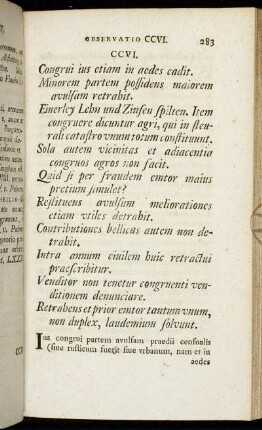 OBSERVATIO CCVI. 283
CCVI.
Congrui ius etiam in aedes cadit.
Minorem partem possidens maiorem
avulsam retrahit.
Einerley Lehn und Zinsen spilten. Item
congruere dicuntur agri, qui in steu-
rali catastro vnum totum constituunt.
Sola autem vicinitas et adiacentia
congruos agros non facit.
Quid si per fraudem emtor maius
pretium simulet?
Restituens avulsum meliorationes
etiam vtiles detrahit.
Contributiones bellicas autem non de-
trahit.
Intra annum ciuilem huic retractui
praescribitur.
Venditor non tenetur congruenti ven-
ditionem denunciare.
Retrahens et prior emtor tantum vnum,
non duplex, laudemium solvunt.
Ius congrui partem avulsam praedii censualis
(siue rusticum fuerit siue vrbanum, nam et in
aedes